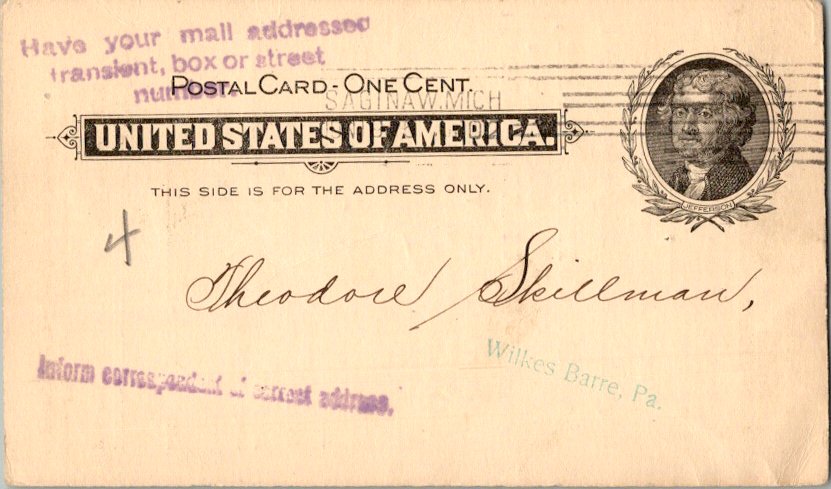 Have your mail addressed
transient, box or street
number.
POSTAL CARD - ONE CENT.
SAGINAW, MICH
UNITED STATES OF AMERICA.
JEFFERSON
THIS SIDE IS FOR THE ADDRESS ONLY.
4
Theodore Skillman,
Wilkes Barre, Pa.
Inform correspondent of correct address.